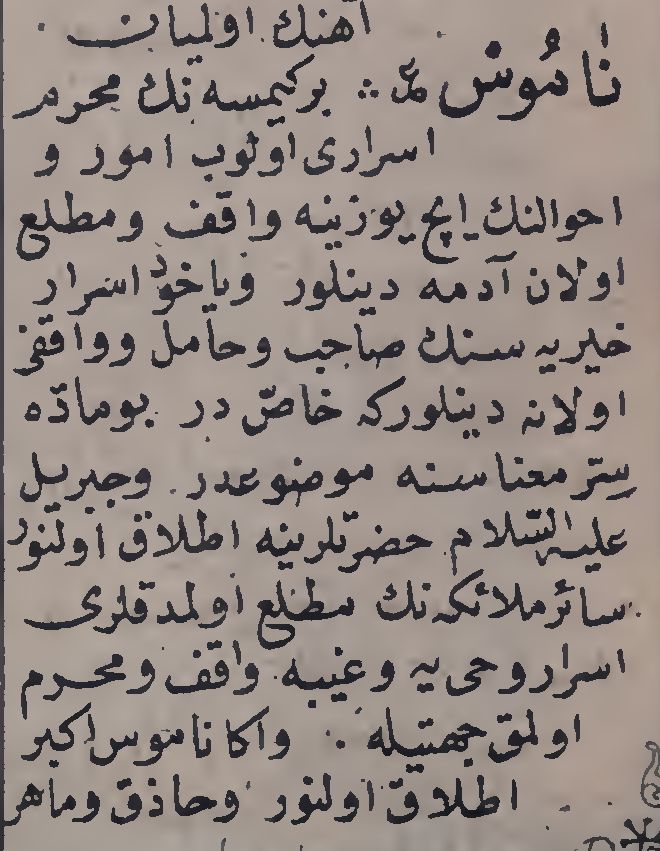 آهنك اولميان
نَامُوسْ ع :: بر كيمسه نك محرم
اسرارى اولوب امور و
احوالنك ايچ يوزينه واقف ومطلع
اولان آدمه دينلور وياخود اسرار
خيريه سنك صاحب وحامل وواقفى
اولانه دينلور كه خاصّ در بوماده
ستر معناسنه موضوعدر وجبريل
عليه السّلام حضرتلرينه اطلاق اولنور
سائر ملائكه نك مطلع اولمدقلرى
اسرار وحى يه وغيبه واقف ومحرم
اولمق جهتيله . واكا ناموس اكبر
اطلاق اولنور وحاذق وماهر